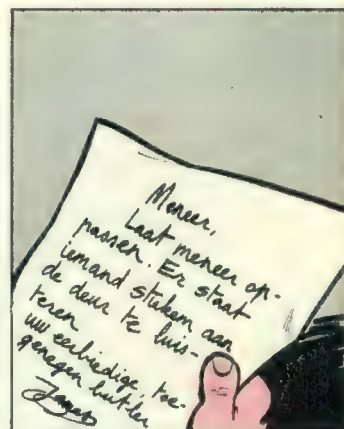 Meneer,
Laat meneer op-
passen. Er staat
iemand stiekem aan
de deur te luis-
teren
uw eerbiedige, toe-
genegen huttler
James